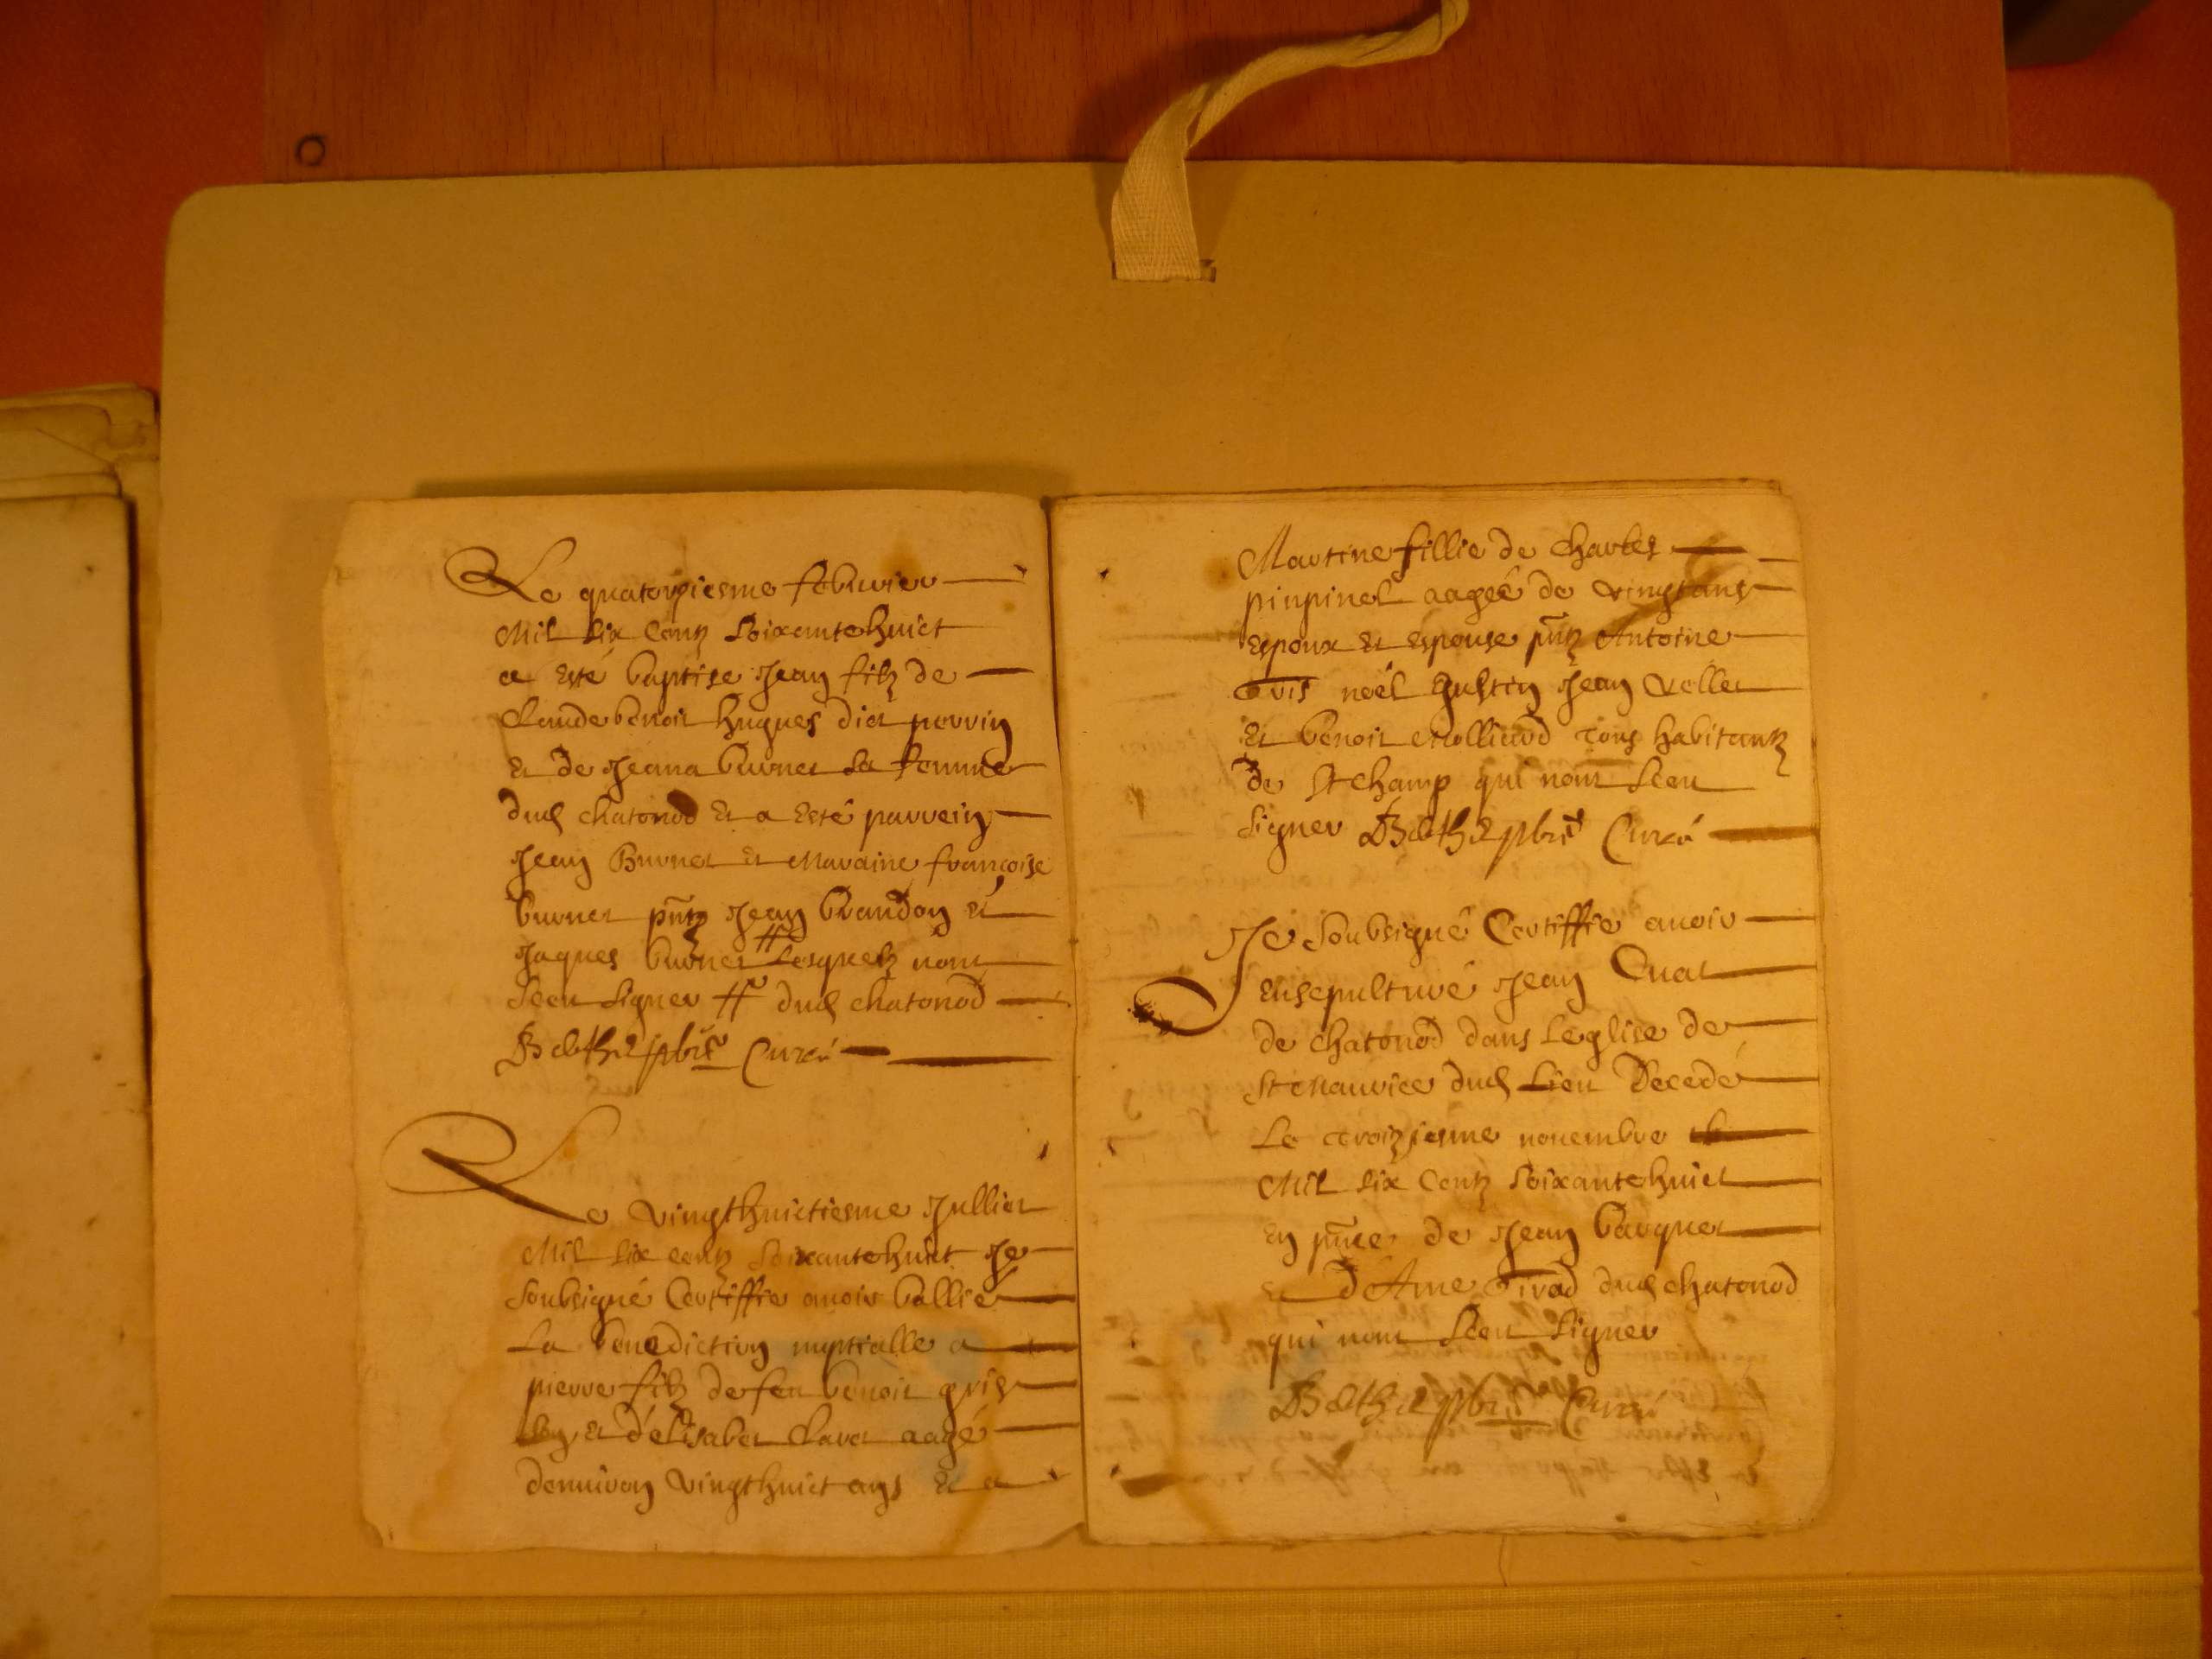 Le quatorziesme febvrier
Mil six Centz Soixantehuict
a esté baptise Jean filz de
Claude benoit hugues dict perrin
et de Jeana burnet sa femme
dud chatonod et a esté parrein
Jean Burnet et Maraine francoise
burnet pntz Jean brandon et
Jaques burnet # Lesquelz nont
sceu signer # dud chatonod
pbre Curé
Le vingthuictiesme Julliet
Mil six centz soixantehuict Je
soubsigné Certiffie avoir ballié
La benediction nuptialle a
pierre filz de feu benoit
et d'élisabet Claret aagé
denviron vingthuict ans et a
Martine fillie de Charles
pinpinel aageé de vingtans
espoux et espouse pntz Antoine
noel Jean vellet
et benoit Molliard tous habitantz
de St champ qui nont sceu
signer pbre Curé
Je soubsigné Certiffie avoir
ensepulturé Jean Cuat
de chatonod dans Leglise de
St Maurice dud Lieu Decedé
Le troiziesme novembre
Mil six Centz soixantehuict
en pnce de Jean barquet
et d'Ame Tirad dud chatonod
qui nont sceu signer
pbre Curé